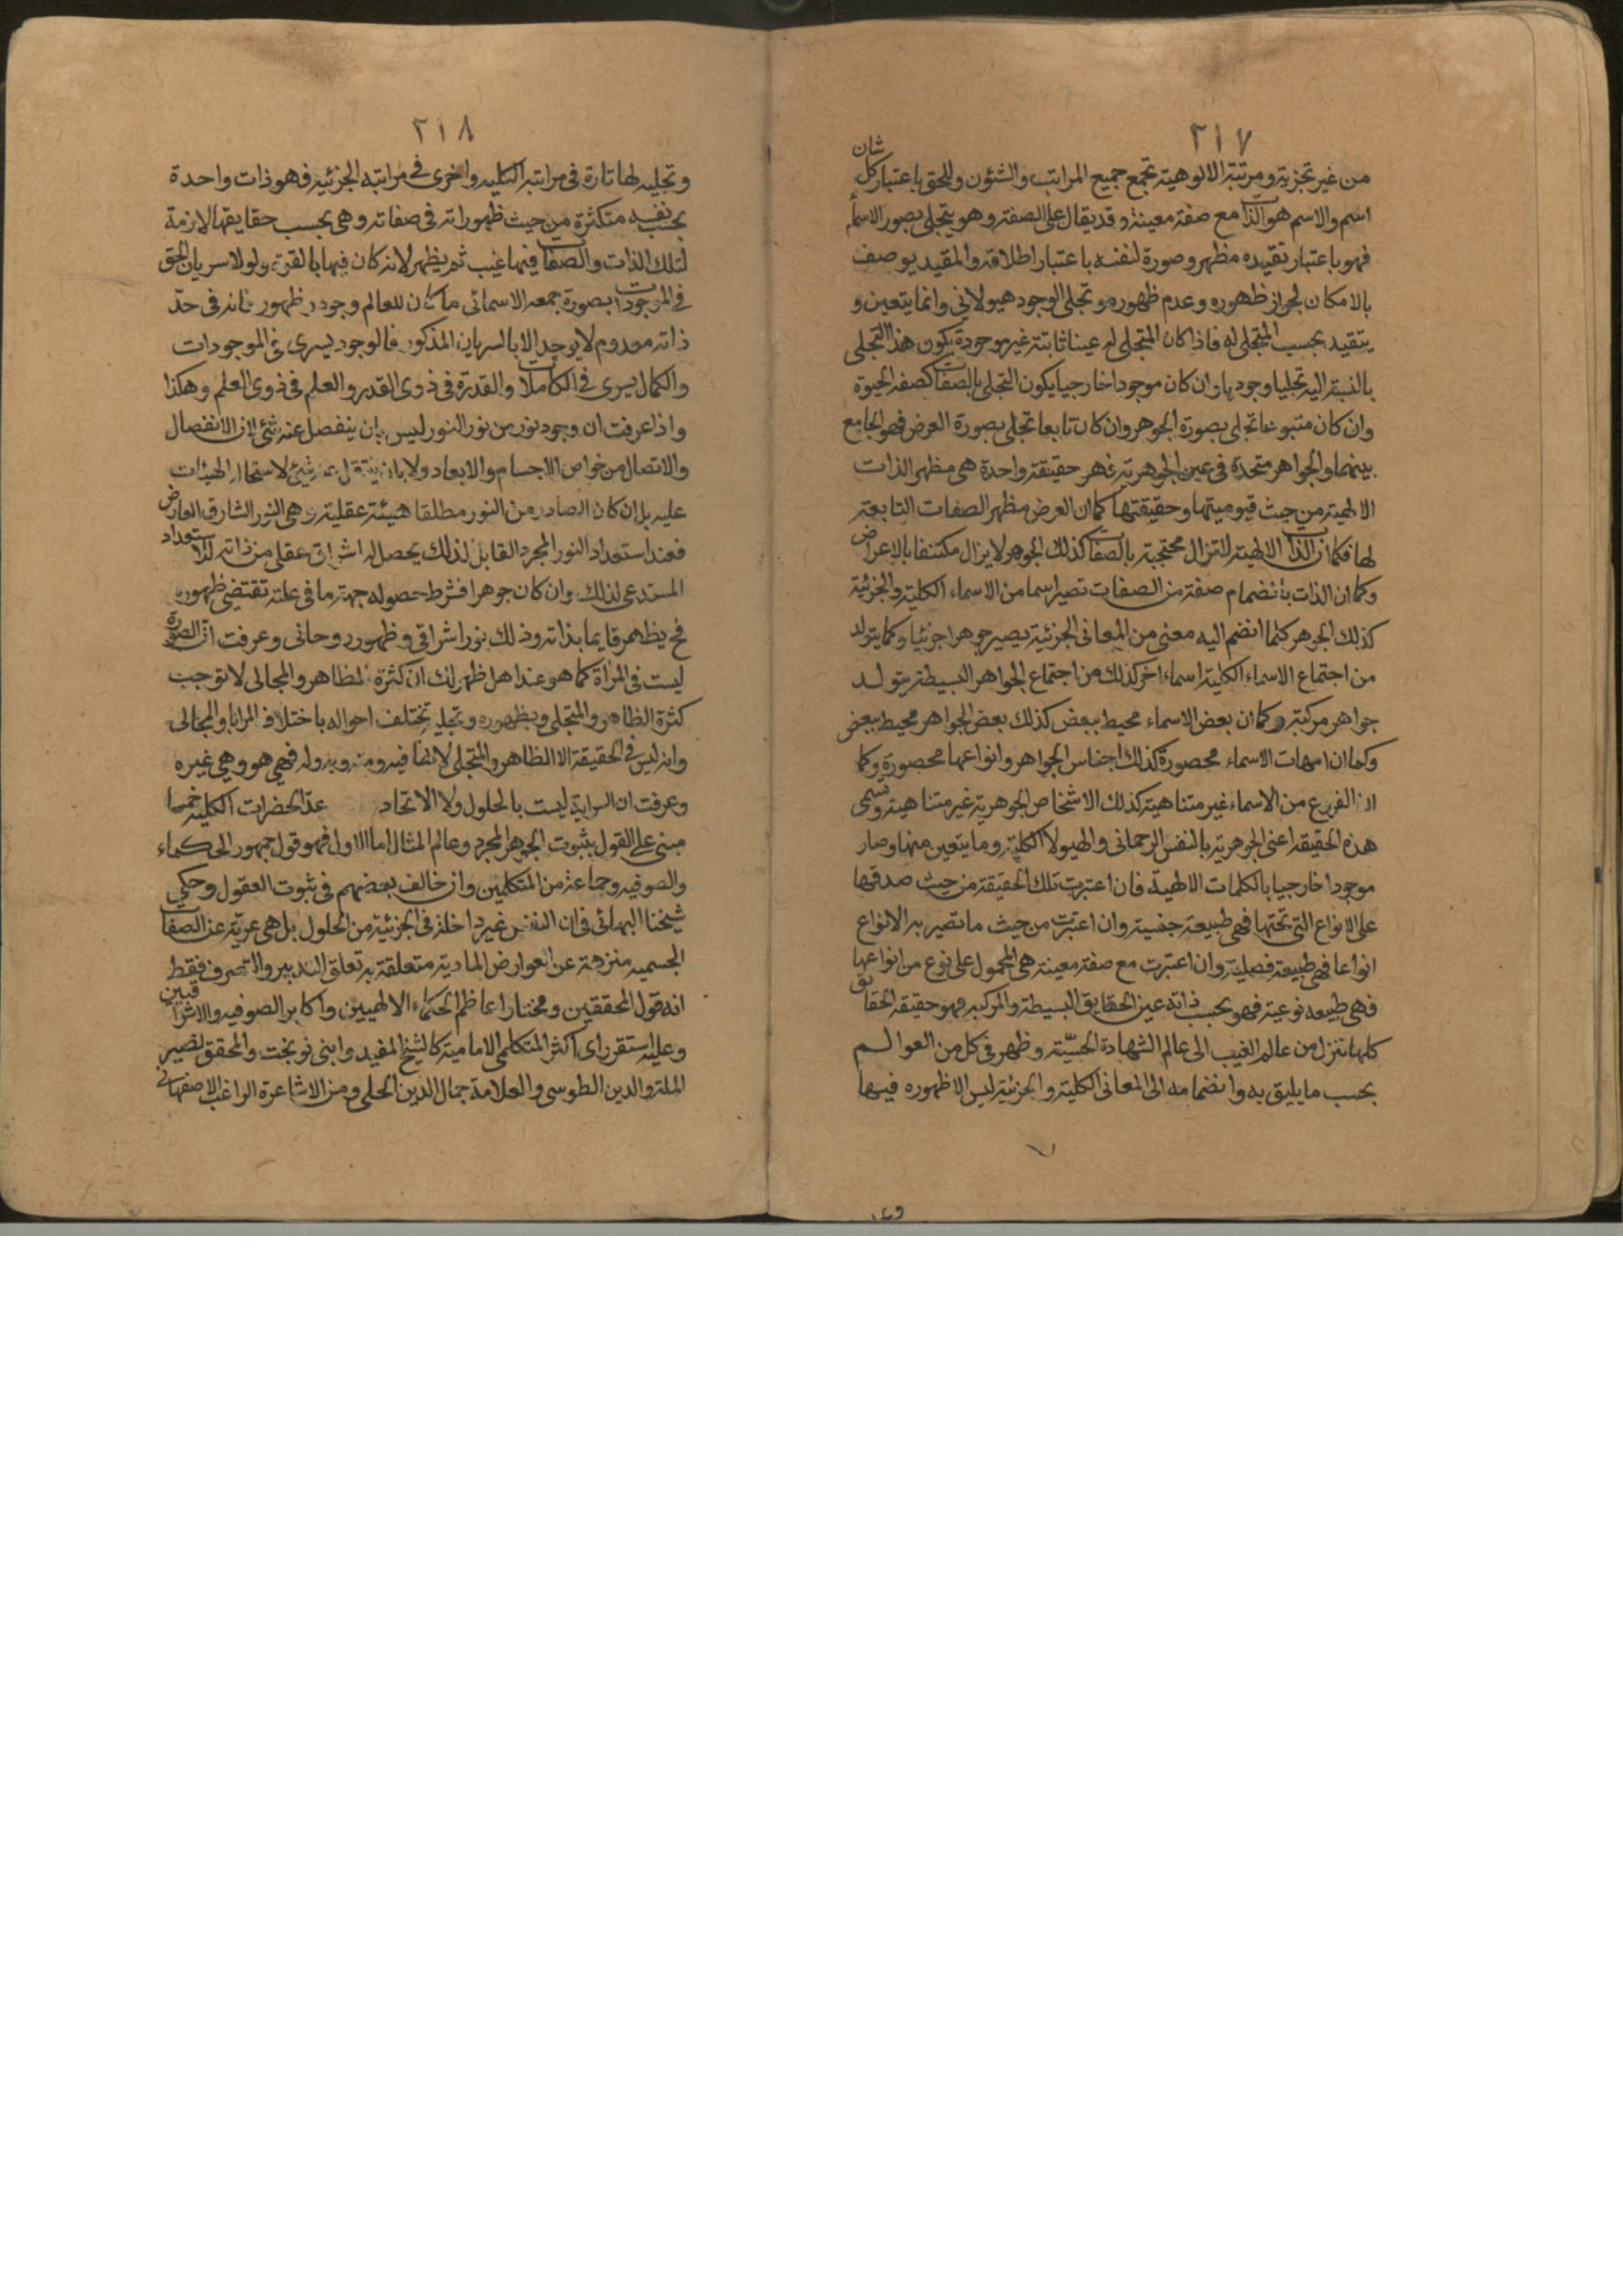 ٢١٧
من غير تجزية ومرتبة الالوهية تجمع جميع المراتب والشئون وللحق باعتبار كل شان
اسم والاسم هو الذات مع صفة معينة وقد يقال على الصفة وهو يتجلى بصور الاسماء
فهو باعتبار تقيده مظهر وصورة لنفسه باعتبار اطلاقه والمقيد يوصف
بالامكان لجواز ظهوره وعدم ظهوره وتجلى الوجود هيولاني وانما يتعين و
يتقيد بحسب المتجلى له فاذا كان المتجلى له عينا ثابتة غير موجودة يكون هذا التجلى
بالنسبة اليه تجليا وجوديا وان كان موجودا خارجيا يكون التجلى بالصفات كصفة الحيوة
وان كان متبوعا تجلى بصورة الجوهر وان كان تابعا تجلى بصورة العرض فهو الجامع
بينهما والجواهر متحدة في عين الجوهرية فهو حقيقة واحدة هي مظهر الذات
الالهية من حيث قيوميتها وحقيقتها كما ان العرض مظهر الصفات التابعة
لها فكما ان الذات الالهية لا تزال محتجبة بالصفات كذلك الجوهر لا يزال مكتنفا بالاعراض
وكما ان الذات بانضمام صفة من الصفات تصير اسما من الاسماء الكلية والجزئية
كذلك الجوهر كلما انضم اليه معنى من المعانى الجزئية يصير جوهرا جزئيا وكما يتولد
من اجتماع الاسماء الكلية اسماء اخر كذلك من اجتماع الجواهر البسيطة يتولد
جواهر مركبة وكما ان بعض الاسماء محيط ببعض كذلك بعض الجواهر محيط ببعض
وكما ان امهات الاسماء محصورة كذلك اجناس الجواهر وانواعها محصورة وكما
ان الفروع من الاسماء غير متناهية كذلك الاشخاص الجوهرية غير متناهية وتسمى
هذه الحقيقة اعنى الجوهرية بالنفس الرحمانى والهيولا الكلية وما يتعين منها وصار
موجودا خارجيا بالكلمات الالهية فان اعتبرت تلك الحقيقة من حيث صدقها
على الانواع التى تحتها فهى طبيعة جنسية وان اعتبرت من حيث ما تصير به الانواع
انواعا فهى طبيعة فصلية وان اعتبرت مع صفة معينة هى المحمول على نوع من انواعها
فهى طبيعه نوعية فهو بحسب ذاته عين الحقايق البسيطة والمركبه فهو حقيقة الحقايق
كلها تنزل من عالم الغيب الى عالم الشهادة الحسّية وظهر فى كل من العوالم
بحسب ما يليق به وانضمامه الى المعانى الكلية والجزئية ليس الا ظهوره فيها
٢١٨
وتجليه لها تارة فى مراتبه الكليه واخرى فى مراتبه الجزئيه فهو ذات واحدة
بحسب نفسه متكثرة من حيث ظهوراته فى صفاته وهى بحسب حقايقها لازمة
لتلك الذات والصفات فيها غيب ثم يظهر لانه كان فيها بالقوة ولولا سريان الحق
فى الموجودات بصورة جمعه الاسمائى ما كان للعالم وجود وظهور فانه فى حدّ
ذاته معدوم لا يوجد الا بالسريان المذكور فالوجود يسرى فى الموجودات
والكمال يسرى فى الكاملات والقدرة فى ذوى القدر والعلم فى ذوى العلم وهكذا
واذا عرفت ان وجود نور من نور النور ليس بان ينفصل عنه شئ اذ الانفصال
والاتصال من خواص الاجسام والابعاد ولا بان ينتقل عنه شئ لاستحالة الهيئات
عليه بل ان كان الصادر من النور مطلقا هيئة عقلية وهى النور الشارق العارض
فعند استعداد النور المجرد القابل لذلك يحصل له اشراق عقلى من ذاته لذا استعداد
المستدعى لذلك وان كان جوهرا فشرط حصوله جهة ما فى علته تقتضى ظهوره
فح يظهر قايما بذاته وذلك نور اشراقى وظهور روحانى وعرفت ان الصورة
ليست فى المرآة كما هو عند اهل ظهر لك ان كثرة المظاهر والمجالى لا توجب
كثرة الظاهر والمتجلى وبظهوره وتجليه تختلف احواله باختلاف المرايا والمجالى
وانه ليس فى الحقيقة الا الظاهر والمتجلى لانها فيه ومنه وبه وله فهى هو وهى غيره
وعرفت ان السراية ليست بالحلول ولا الاتحاد عدّ الحضرات الكلية خمسا
مبنى على القول بثبوت الجوهر المجرد وعالم المثال اما الاول فهو قول جمهور الحكماء
والصوفيه وجماعة من المتكلمين وان خالف بعضهم فى ثبوت العقول وحكى
شيخنا البهائى فى ان النفس غير داخلة فى الجزئية من الحلول بل هى عرية عن الصفات
الجسميه منزهة عن العوارض المادية متعلقة به تعلق التدبير والتصرف فقط
انه قول المحققين ومختار اعاظم الحكماء الالهيين واكابر الصوفيه والاشراقيين
وعليه استقر راى اكثر المتكلمى الامامية كالشيخ المفيد وابنى نوبخت والمحقق نصير
الملة والدين الطوسى والعلامة جمال الدين الحلى ومن الاشاعرة الراغب الاصفهانى